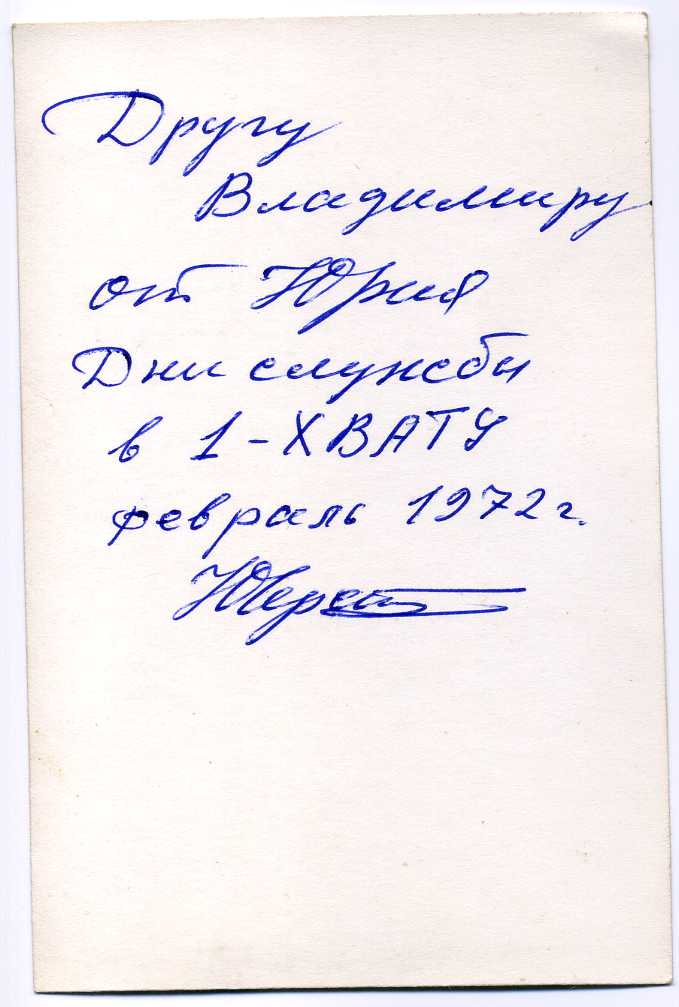 Другу
Владимиру
от Юрия
Дни службы
в 1-ХВАТУ
февраль 1972г.